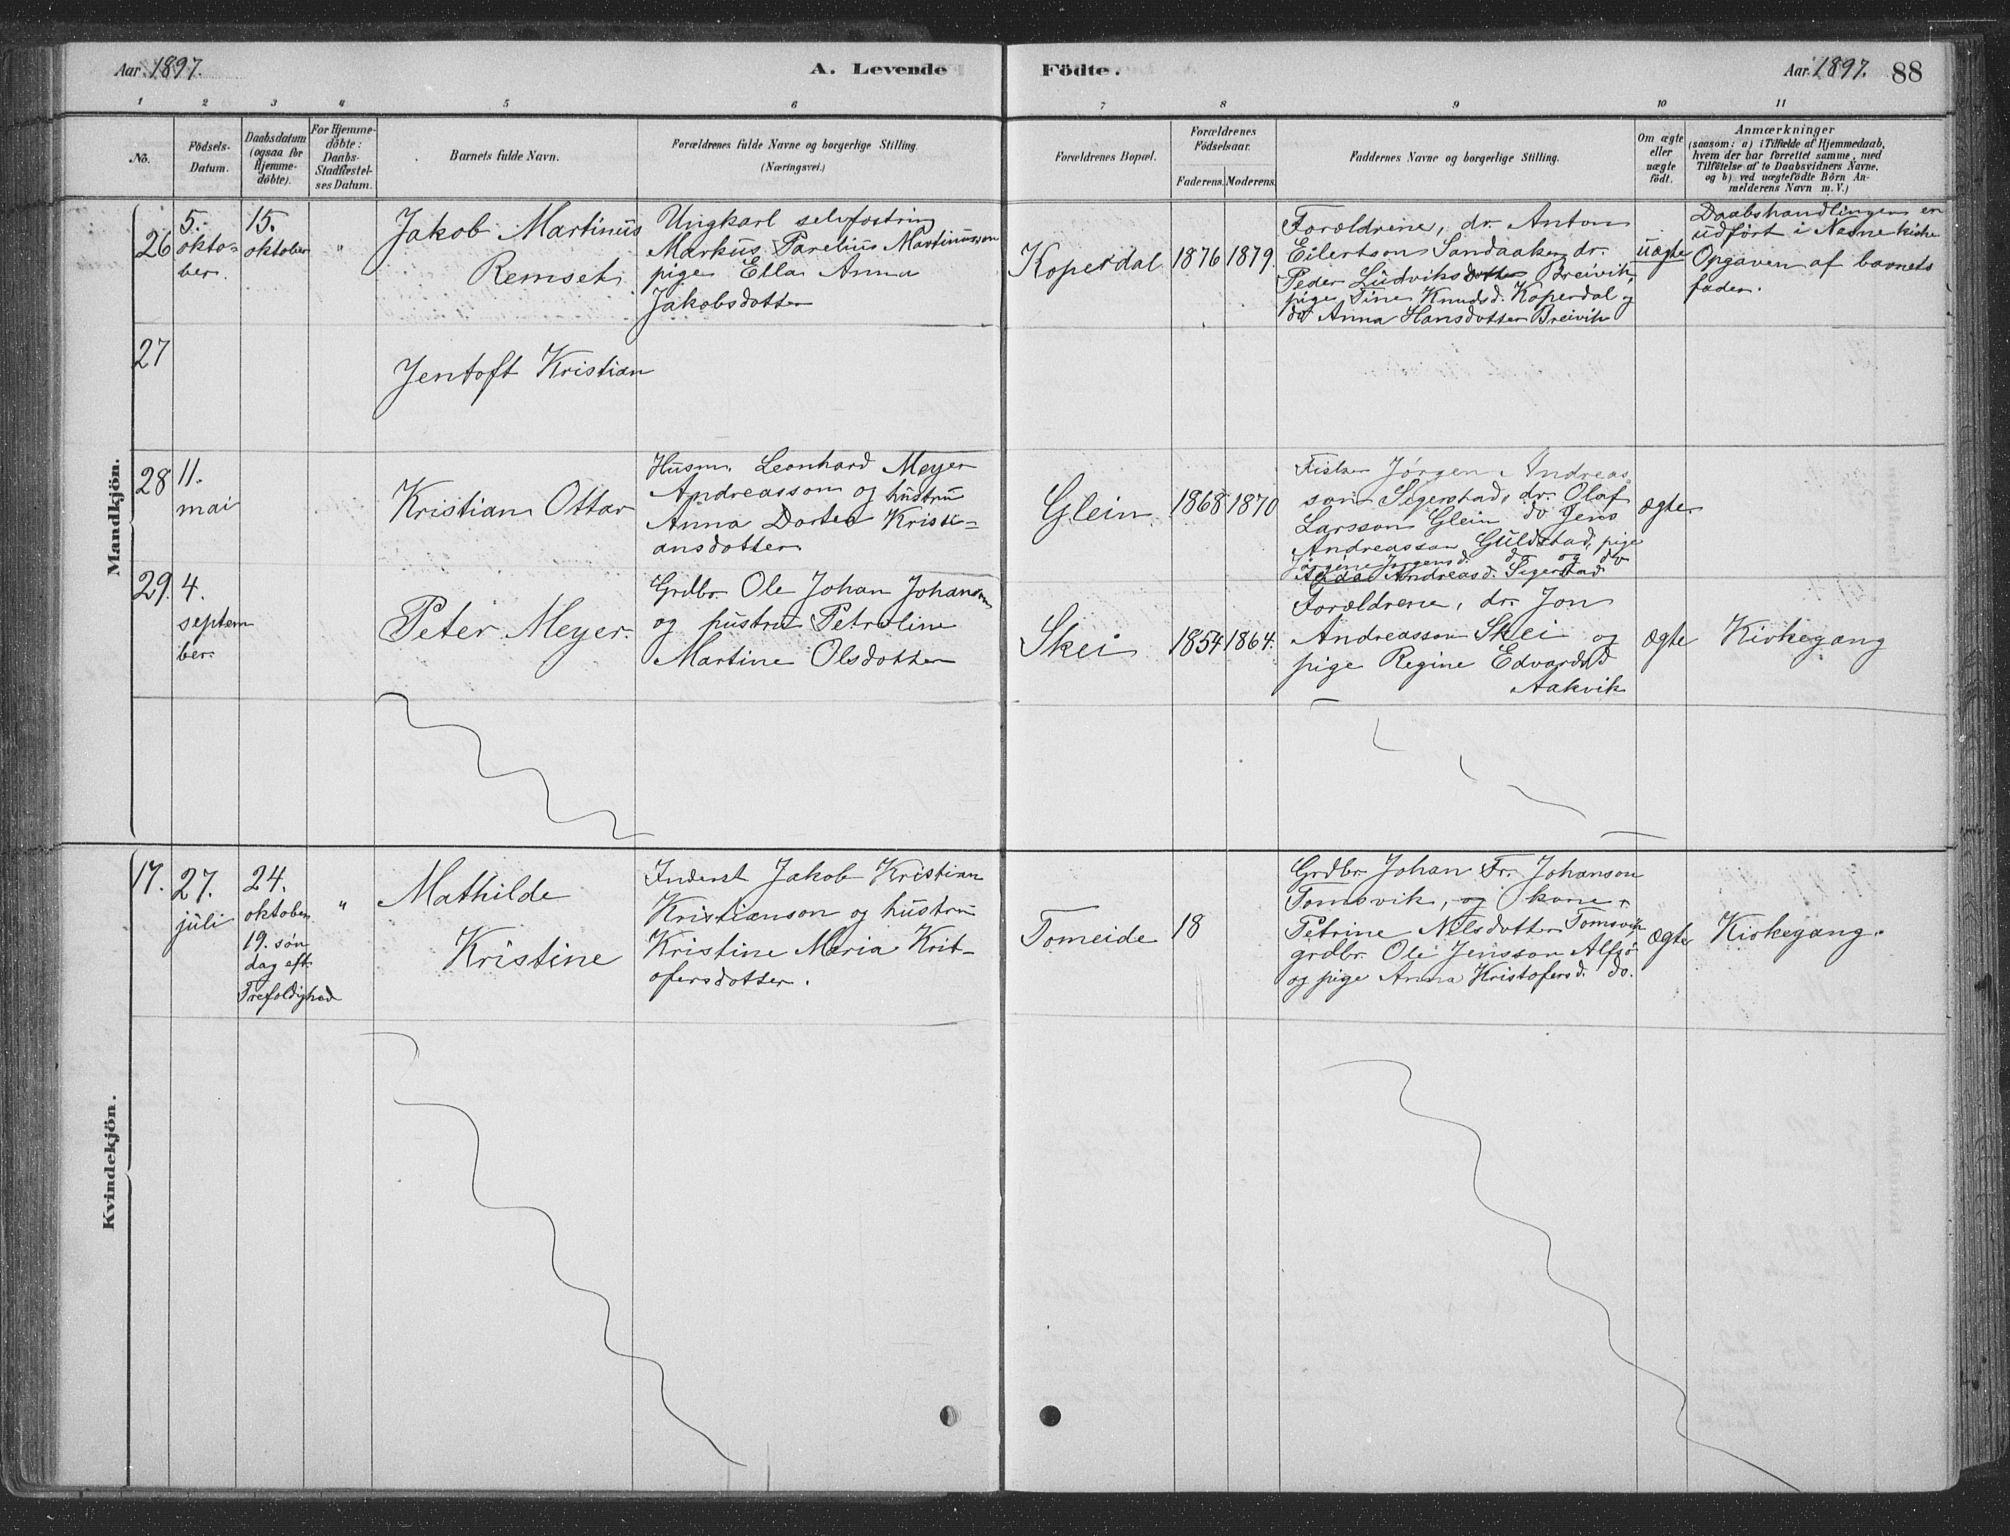 Aar 1897.
A. Levende
Födte.
Aar 1897. 88
1 2 3 4 5 6 7 8 9 10 11
No.
Födsels-
Datum.
Daabsdatum
(ogsaa for
Hjemme-
döbte).
For Hjemme-
döbte:
Daabs-
Stadfæstel-
ses Datum.
Barnets fulde Navn.
Forældrenes fulde Navne og borgerlige Stilling.
(Næringsvei.)
Forældrenes Bopæl.
Forældrenes
Födselsaar.
Faderens. Moderens.
Faddernes Navne og borgerlige Stilling.
Om ægte
eller
uægte
födt.
Anmærkninger
(saasom: a) i Tilfælde af Hjemmedaab,
hvem der har forrettet samme, med
Tilföielse af to Daabsvidners Navne.
og b) ved uægtefödte Börn An-
melderens Navn m. V.)
Mandkjön.
26
5.
okto-
ber.
15.
oktober
"
Jakob Martinus
Remset.
Ungkarl
Markus Parelius Martinusson
pige Ella Anna
Jakobsdotter
Koperdal
1876 1879.
Forældrene, dr. Anton
Eilertson Sandaaker, dr.
Peder Ludviks Breivik,
pige Tine Knudsd. Koperdal og
do Anna Hansdotter Breivik
uægte
Daabshandlingen er
udført i Nesne kirke
Opgaven af barnets
fader.
27
Jentoft Kristian
28
11.
mai
Kristian Ottar
Husm. Leonhard Meyer
Andreasson og hustru
Anna Dortea Kristi-
ansdotter
Glein
1868 1870
Fisker Jørgen Andreas
son Sigerstad, dr. Olaf
Larsson Glein do Jens
Andreasson Guldstad, pige
Jørgine Jørgensd. do og do
Andreasd. Sigerstad
ægte
29.
4.
septem
ber.
Peter Meyer.
Grdbr. Ole Johan Johanson
og hustru Petroline
Martine Olsdotter
Skei
1854 1864.
Forældrene, dr. Jon
Andreasson Skei og
pige Regine Edvardsd
Aakvik
ægte
Kirkegang
Kvindekjön.
17.
27.
juli
24.
oktober
19. søn
dag eft.
Trefoldighed
"
Mathilde
Kristine
Inderst Jakob Kristian
Kristianson og hustru
Kristine Maria Krit-
ofersdotter.
Tomeide
18
Grdbr. Johan Fr. Johanson
Tomsvik, og kone
Petrine Nilsdotter Tomsvik
grdbr. Ole Jensson Alfjø
og pige Anna Kristofersd. do.
ægte
Kirkegang.